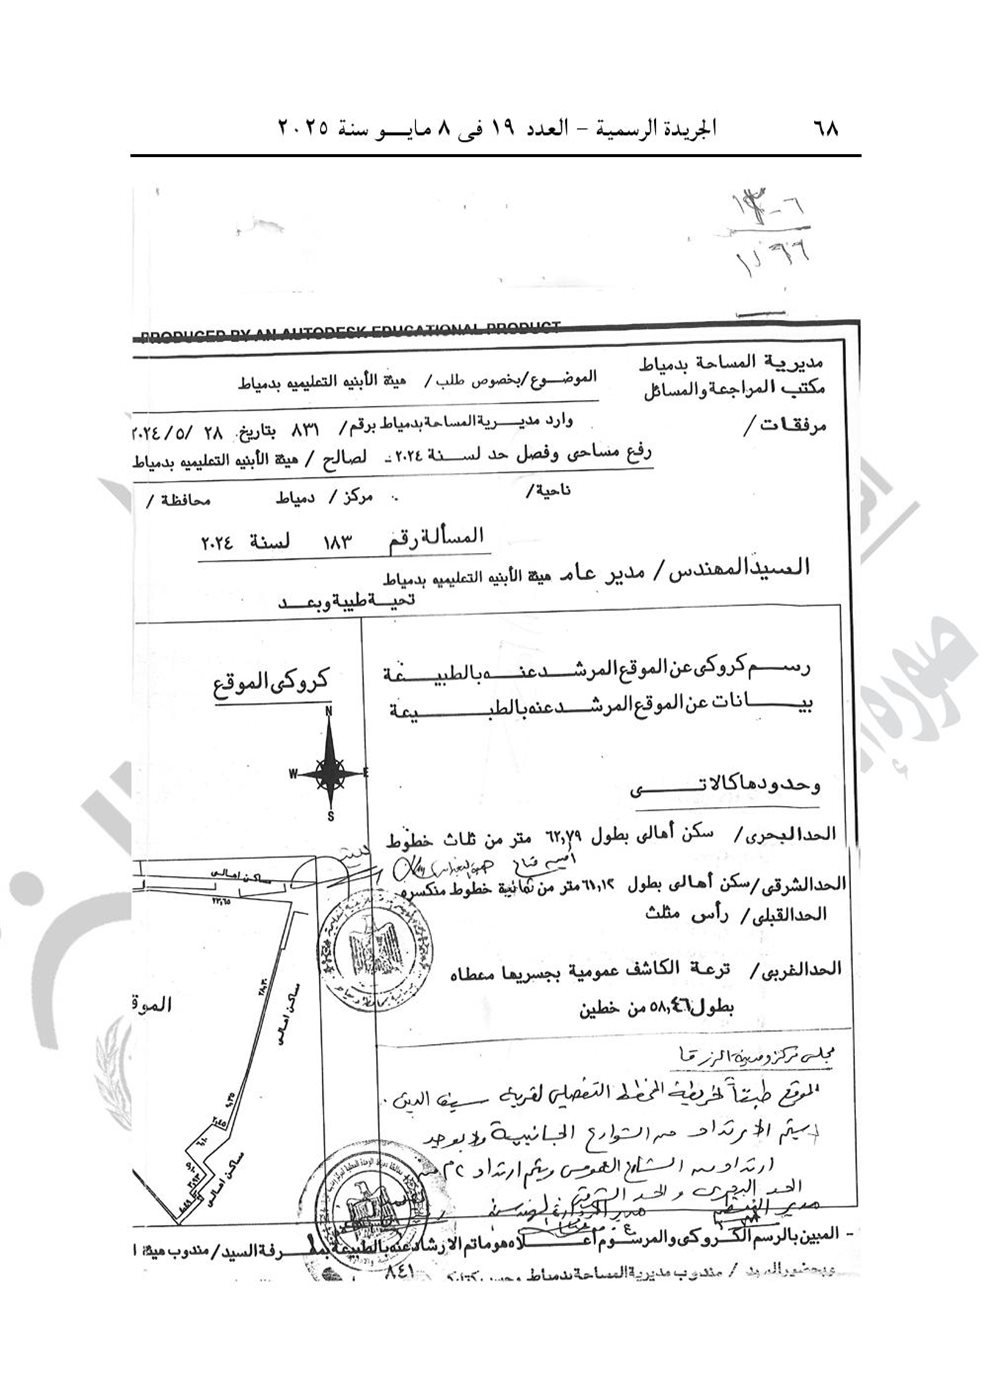 ٦٨
الجريدة الرسمية – العدد ١٩ فى ٨ مايـــو سنة ٢٠٢٥
PRODUCED BY AN AUTODESK EDUCATIONAL PRODUCT
مديرية المساحة بدمياط
مكتب المراجعة والمسائل
مرفقات /
الموضوع/بخصوص طلب/ هيئة الأبنيه التعليميه بدمياط
وارد مديـرية المساحة بدمياط برقم/ ٨٣١ بتاريخ ٢٨ /٥/ ٢٠٢٤
رفع مساحى وفصل حد لسـنة ٢٠٢٤ـ لصالح / هيئة الأبنيه التعليميه بدمياط
ناحية/ مركز / دمياط محافظة /
المسألة رقم ١٨٣ لسنة ٢٠٢٤
السيد المهندس/ مدير عام هيئة الأبنيه التعليميه بدمياط
تحيـة طيبة وبعـد
رســم كروكى عن الموقع المرشـد عنـه بالطبيـــعة
بيـــانات عن الموقع المرشـد عنه بالطبـــيـعة
وحدودها كالاتـــــى
الحد البحرى/ سكن أهالى بطول ٦٢,٧٩ متر من ثلاث خطوط
الحد الشرقى/ سكن أهالى بطول ٦١,١٢ متر من ثمانية خطوط منكسره
الحد القبلى/ رأس مثلث
الحد الغربى/ ترعة الكاشف عمومية بجسريها معطاه
بطول ٥٨,٤٦ من خطين
كروكى الموقع
N
W E
S
مساكن اهالى
٢٣,٦٥
مساكن اهالى
الموق
مساكن اهالى
مجلس مركز ومدينة الزرقا
الموقع طبقاً لخريطة المخطط التفصيلى لقرية سيف الدين
سيتم الارتداد من الشوارع الجانبية ولا يوجد
ارتداد من الشارع العمومى ويتم ارتداد ٢م من
الحد البحرى والحد الشرقى
- المبين بالرسم الكروكى والمرسوم أعـلاه هو ماتم الإرشاد عنه بالطبيعة بمعرفة السيد/ مندوب هيئة ا
وبحضور السيد / مندوب مديرية المساحة بدمياط
٨٤١